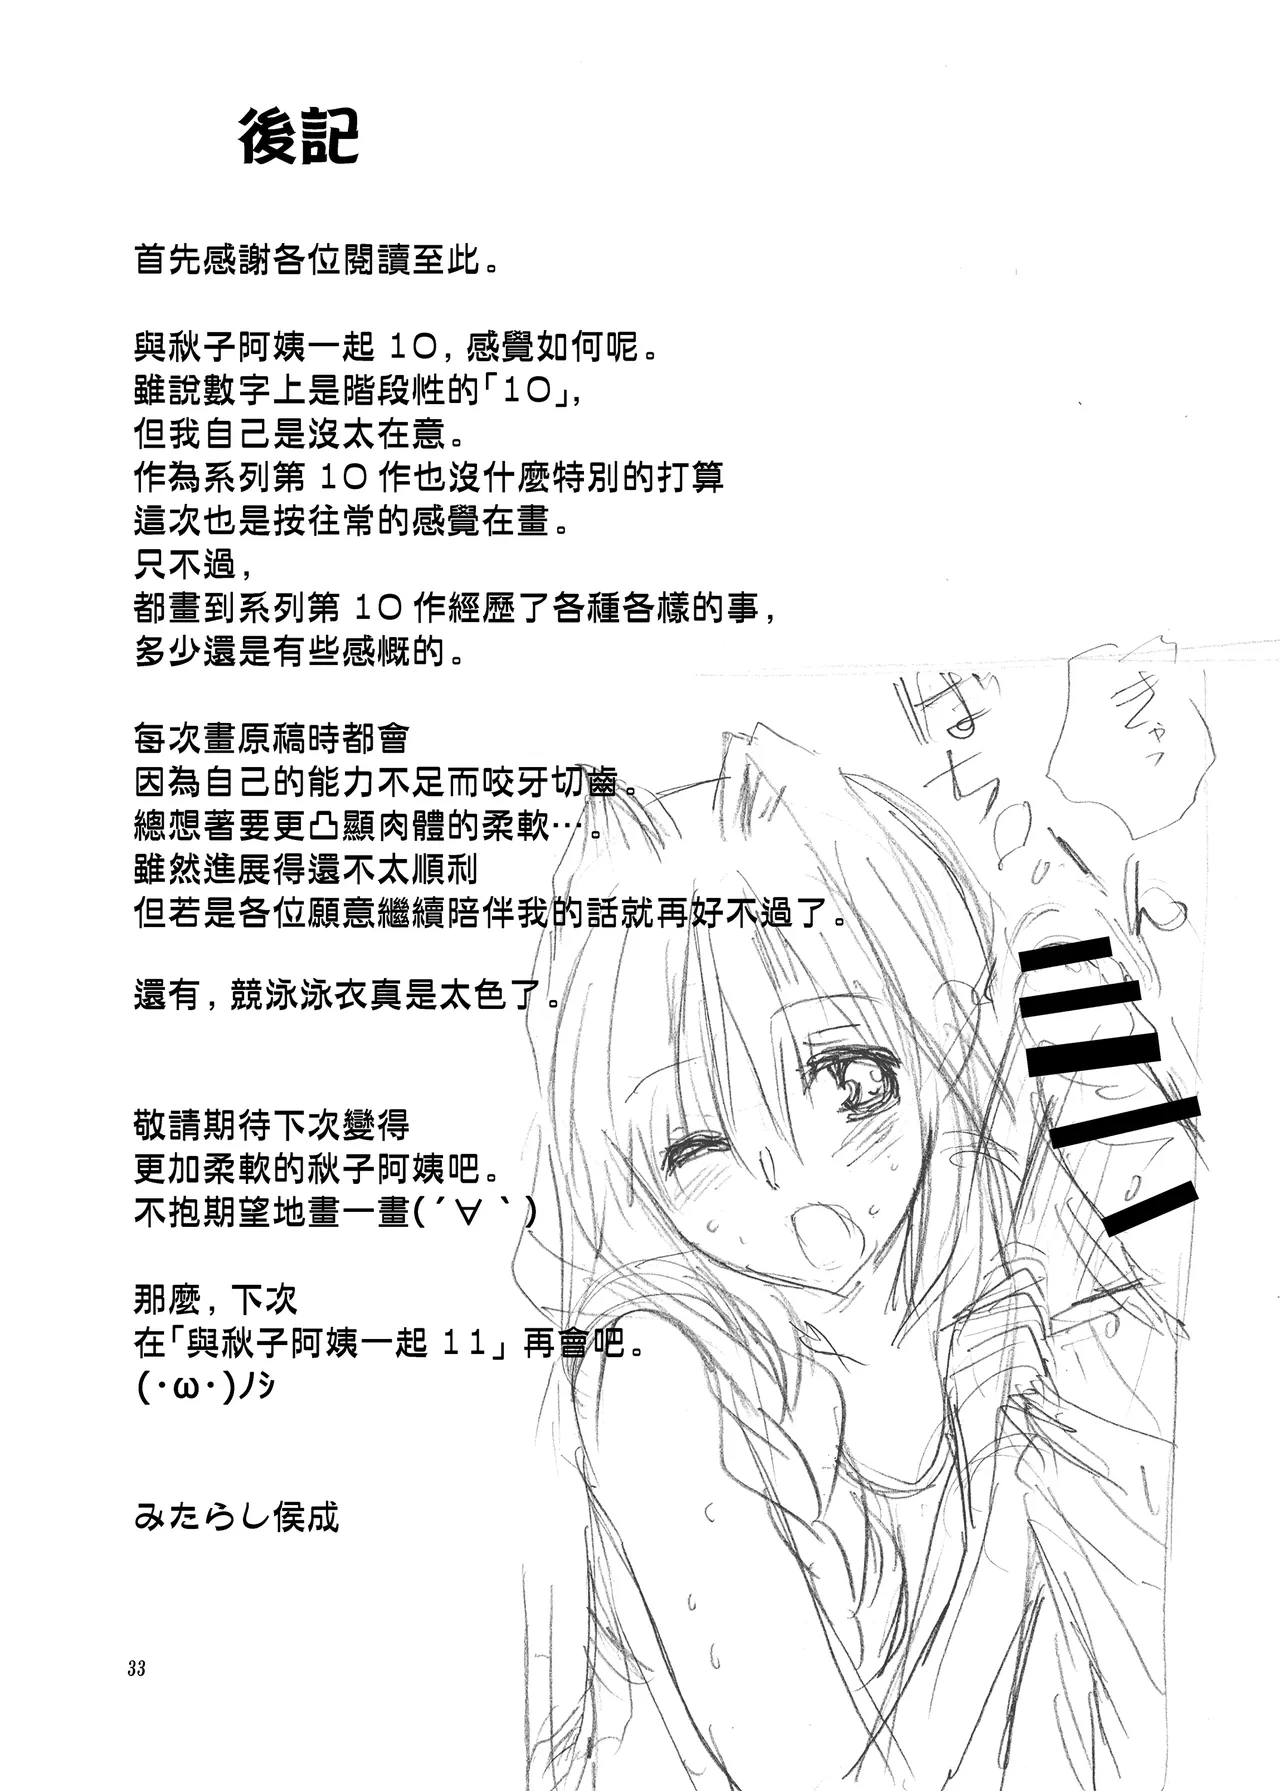 後記
首先感謝各位閱讀至此。
與秋子阿姨一起 10, 感覺如何呢。
雖說數字上是階段性的「10」,
但我自己是沒太在意。
作為系列第 10 作也沒什麼特別的打算
這次也是按往常的感覺在畫。
只不過,
都畫到系列第 10 作經歷了各種各樣的事,
多少還是有些感慨的。
每次畫原稿時都會
因為自己的能力不足而咬牙切齒。
總想著要更凸顯肉體的柔軟…。
雖然進展得還不太順利
但若是各位願意繼續陪伴我的話就再好不過了。
還有, 競泳泳衣真是太色了。
敬請期待下次變得
更加柔軟的秋子阿姨吧。
不抱期望地畫一畫(´∀｀)
那麼, 下次
在「與秋子阿姨一起 11」再會吧。
(･ω･)ﾉｼ
みたらし侯成
33
きゃっ